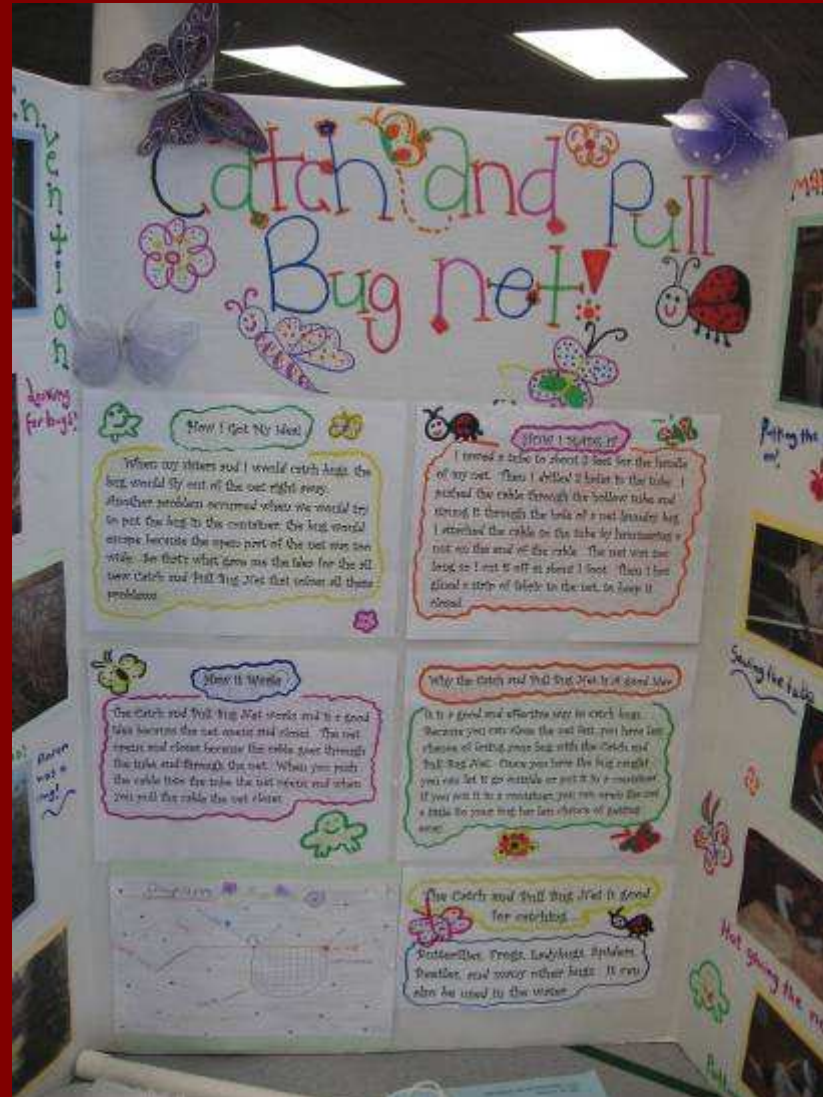 Invention
Catch and Pull
Bug net!
Looking
for bugs!
How I Got My Idea!
When my sisters and I would catch bugs, the
bug would fly out of the net right away.
Another problem occurred when we would try
to put the bug in the container, the bug would
escape because the open part of the net was too
wide. So that's what gave me the idea for the all
new Catch and Pull Bug Net that solves all these
problems.
HOW I MADE IT
I sawed a tube to about 2 feet for the handle
of my net. Then I drilled 2 holes in the tube. I
pushed the cable through the hollow tube and
strung it through the hole of a net laundry bag.
I attached the cable to the tube by hammering a
nut on the end of the cable. The net was too
long so I cut it off at about 1 foot. Then I hot
glued a strip of fabric to the net, to keep it
closed.
How it Works
The Catch and Pull Bug Net works and is a good
idea because the net opens and closes. The net
opens and closes because the cable goes through
the tube and through the net. When you push
the cable into the tube the net opens and when
you pull the cable the net closes.
Why the Catch and Pull Bug Net Is A good Idea
It is a good and effective way to catch bugs.
Because you can close the net fast, you have less
chance of losing your bug with the Catch and
Pull Bug Net. Once you have the bug caught
you can let it go outside or put it in a container.
If you put it in a container, you can open the net
a little so your bug has less chance of getting
away.
Diagram
The Catch and Pull Bug Net is good
for catching
Butterflies, Frogs, Ladybugs, Spiders,
Beetles, and many other bugs. It can
also be used in the water.
Putting the
Sawing the tube
Hot gluing the